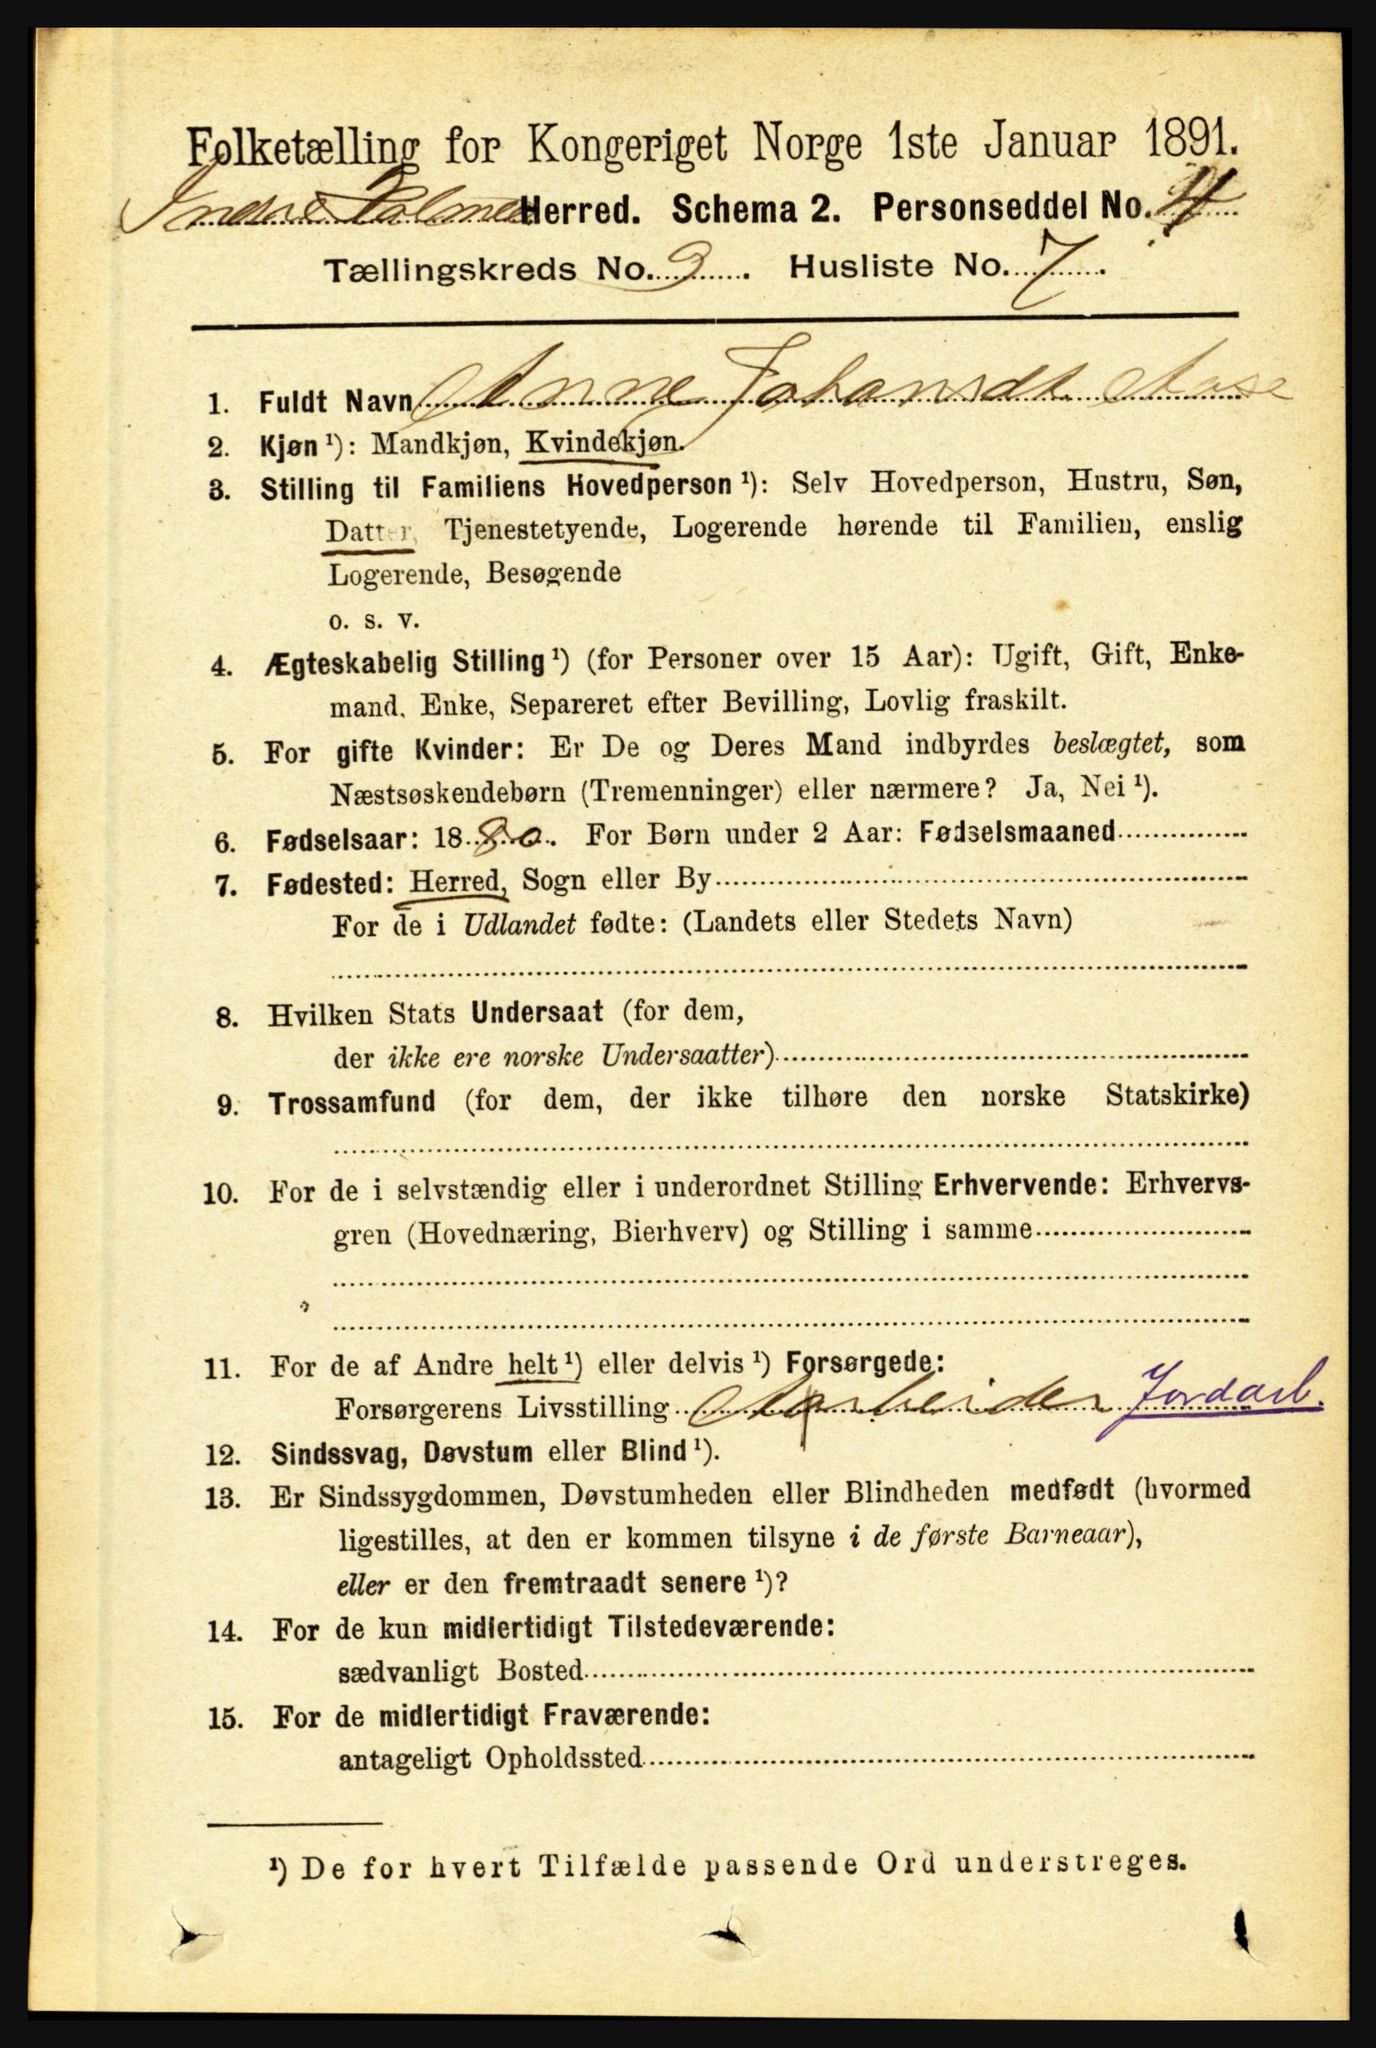 Folketælling for Kongeriget Norge 1ste Januar 1891.
Indre Holmedal Herred. Schema 2. Personseddel No. 4
Tællingskreds No. 3. Husliste No. 7.
1. Fuldt Navn Anne Johansdt. Aase
2. Kjøn ¹): Mandkjøn, Kvindekjøn.
3. Stilling til Familiens Hovedperson ¹): Selv Hovedperson, Hustru, Søn,
Datter, Tjenestetyende, Logerende hørende til Familien, enslig
Logerende, Besøgende
o. s. v.
4. Ægteskabelig Stilling ¹) (for Personer over 15 Aar): Ugift, Gift, Enke-
mand, Enke, Separeret efter Bevilling, Lovlig fraskilt.
5. For gifte Kvinder: Er De og Deres Mand indbyrdes beslægtet, som
Næstsøskendebørn (Tremenninger) eller nærmere? Ja, Nei ¹).
6. Fødselsaar: 1880. For Børn under 2 Aar: Fødselsmaaned
7. Fødested: Herred, Sogn eller By
For de i Udlandet fødte: (Landets eller Stedets Navn)
8. Hvilken Stats Undersaat (for dem,
der ikke ere norske Undersaatter)
9. Trossamfund (for dem, der ikke tilhøre den norske Statskirke)
10. For de i selvstændig eller i underordnet Stilling Erhvervende: Erhvervs-
gren (Hovednæring, Bierhverv) og Stilling i samme
11. For de af Andre helt ¹) eller delvis ¹) Forsørgede:
Forsørgerens Livsstilling Aarbeider Jordarb.
12. Sindssvag, Døvstum eller Blind ¹).
13. Er Sindssygdommen, Døvstumheden eller Blindheden medfødt (hvormed
ligestilles, at den er kommen tilsyne i de første Barneaar),
eller er den fremtraadt senere ¹)?
14. For de kun midlertidigt Tilstedeværende:
sædvanligt Bosted
15. For de midlertidigt Fraværende:
antageligt Opholdssted
¹) De for hvert Tilfælde passende Ord understreges.